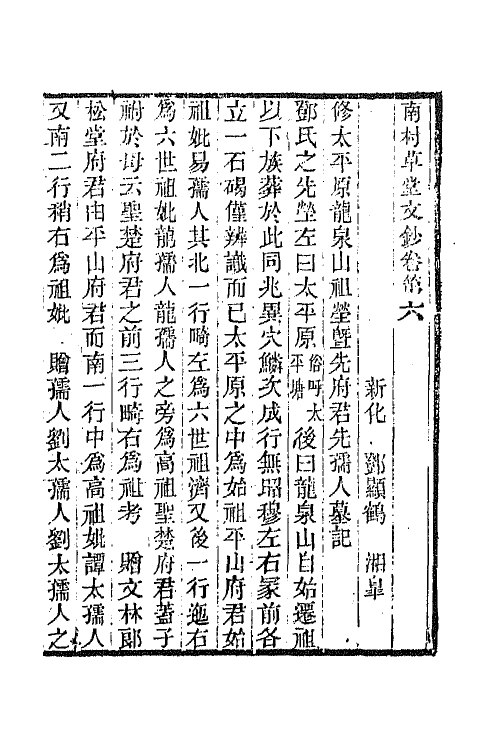 南村草堂文鈔卷第六
新化 鄧顯鶴 湘皋
修太平原龍泉山祖塋暨先府君先孺人墓記
鄧氏之先塋左曰太平原俗呼太平塘後曰龍泉山自始遷祖
以下族葬於此同兆異穴鱗次成行無昭穆左右冢前各
立一石碣僅辨識而已太平原之中為始祖平山府君始
祖妣易孺人其北一行畸左為六世祖濟又後一行迤右
為六世祖妣龍孺人龍孺人之旁為高祖聖楚府君蓋子
祔於母云聖楚府君之前三行畸右為祖考 贈文林郎
松堂府君由平山府君而南一行中為高祖妣譚太孺人
又南二行稍右為祖妣 贈孺人劉太孺人劉太孺人之